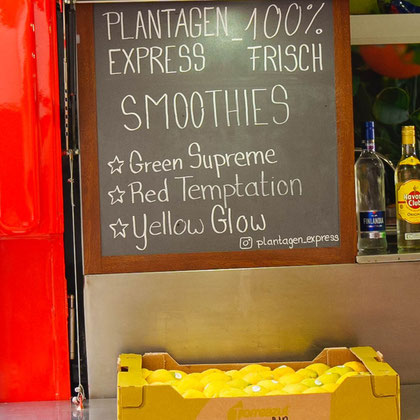 PLANTAGEN_100%
EXPRESS FRISCH
SMOOTHIES
☆ Green Supreme
☆ Red Temptation
☆ Yellow Glow
plantagen_express
FINLANDIA
Havana
Club